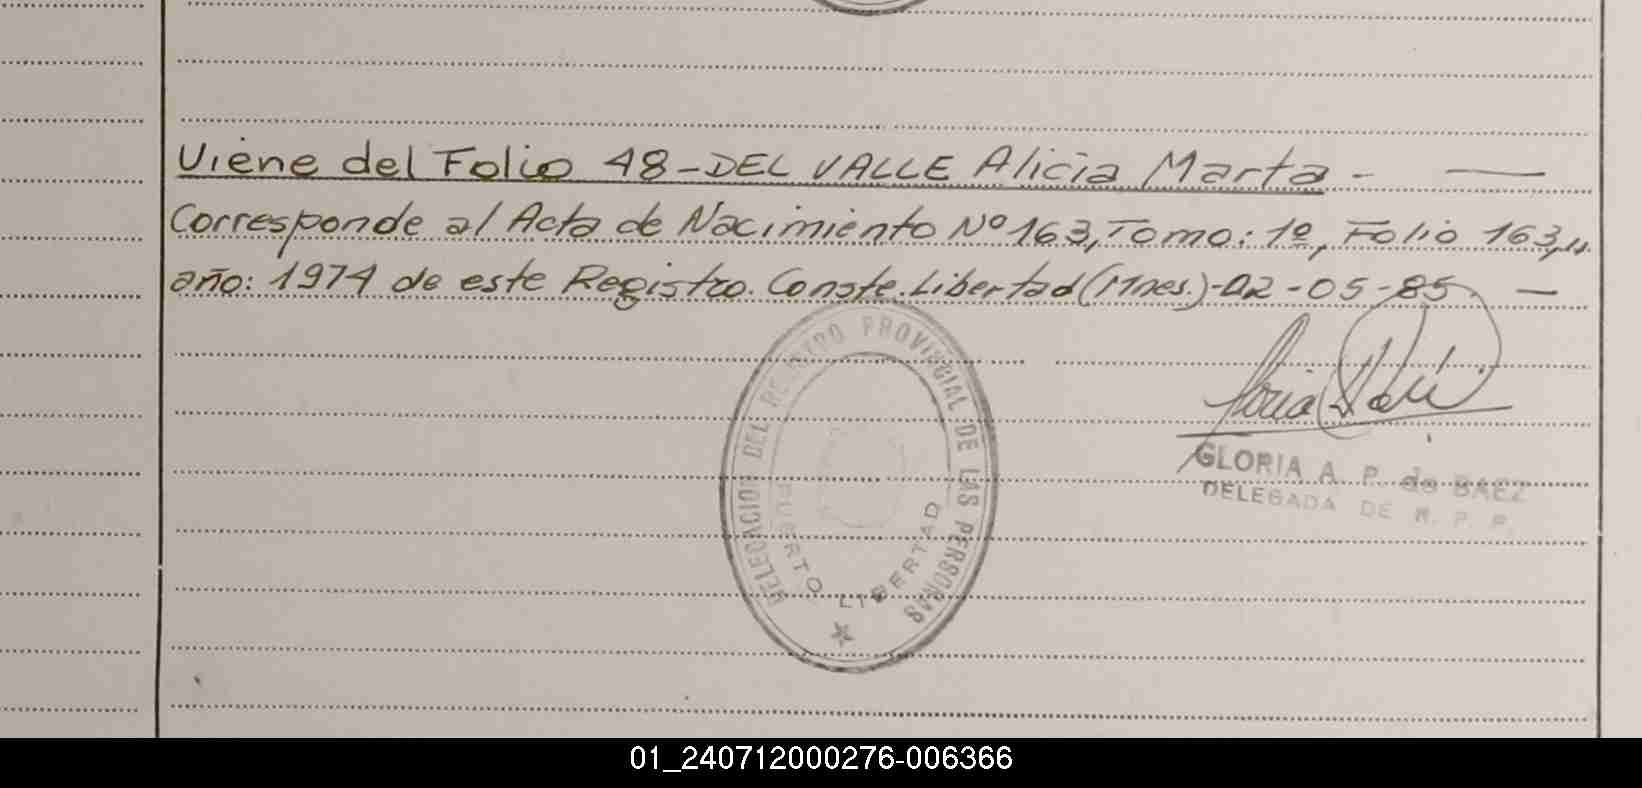 Viene del Folio 48-DEL VALLE Alicia Marta - —
Corresponde al Acta de Nacimiento Nº 163, Tomo: 1º, Folio 163,
año: 1974 de este Registro. Conste. Libertad (Mnes.)-02-05-85. —
DELEGACION DEL REGISTRO PROVINCIAL DE LAS PERSONAS
PUERTO LIBERTAD
GLORIA A. P. de BAEZ
DELEGADA DE R. P. P.
01_240712000276-006366